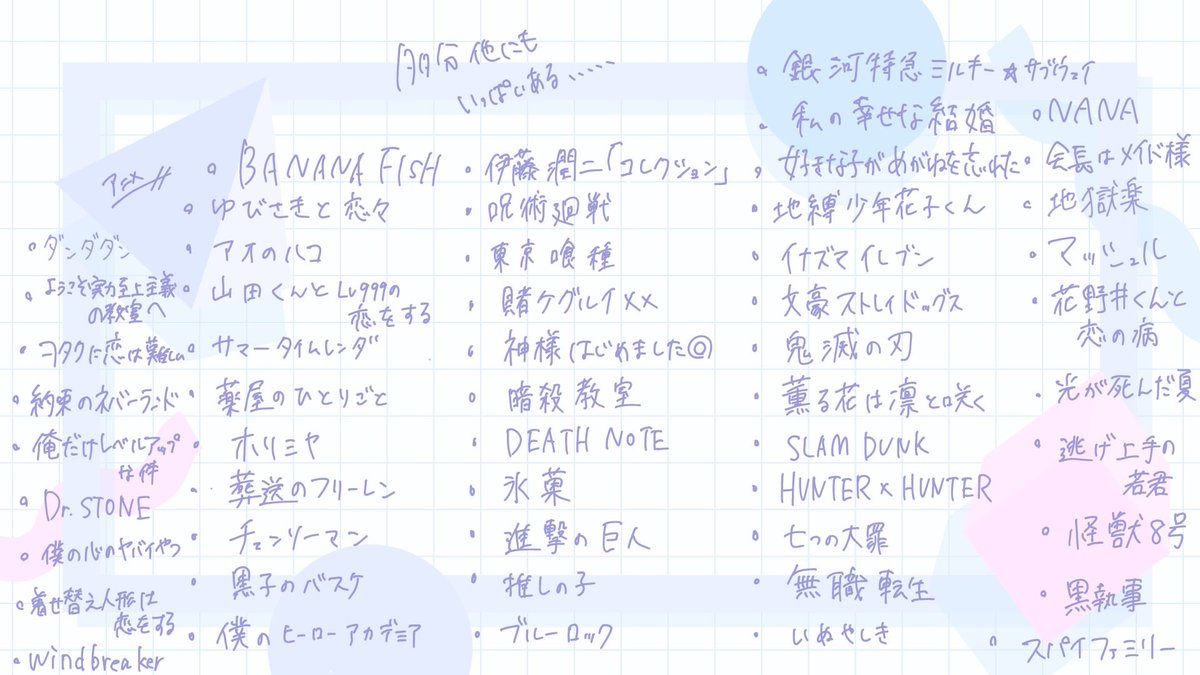 多分他にも
いっぱいある……
アニメ
・ダンダダン
・ようこそ実力至上主義
の教室へ
・ヲタクに恋は難しい
・約束のネバーランド
・俺だけレベルアップ
な件
・Dr.STONE
・僕の心のヤバイやつ
・着せ替え人形は
恋をする
・Windbreaker
・BANANA FISH
・ゆびさきと恋々
・アオのハコ
・山田くんとLv999の
恋をする
・サマータイムレンダ
・薬屋のひとりごと
・ホリミヤ
・葬送のフリーレン
・チェンソーマン
・黒子のバスケ
・僕のヒーローアカデミア
・伊藤潤二「コレクション」
・呪術廻戦
・東京喰種
・賭ケグルイ××
・神様はじめました◎
・暗殺教室
・DEATH NOTE
・氷菓
・進撃の巨人
・推しの子
・ブルーロック
・銀河特急ミルキー☆サブウェイ
・私の幸せな結婚
・好きな子がめがねを忘れた
・地縛少年花子くん
・イナズマイレブン
・文豪ストレイドッグス
・鬼滅の刃
・薫る花は凛と咲く
・SLAM DUNK
・HUNTER×HUNTER
・七つの大罪
・無職転生
・いぬやしき
・NANA
・会長はメイド様
・地獄楽
・マッシュル
・花野井くんと
恋の病
・光が死んだ夏
・逃げ上手の
若君
・怪獣8号
・黒執事
・スパイファミリー